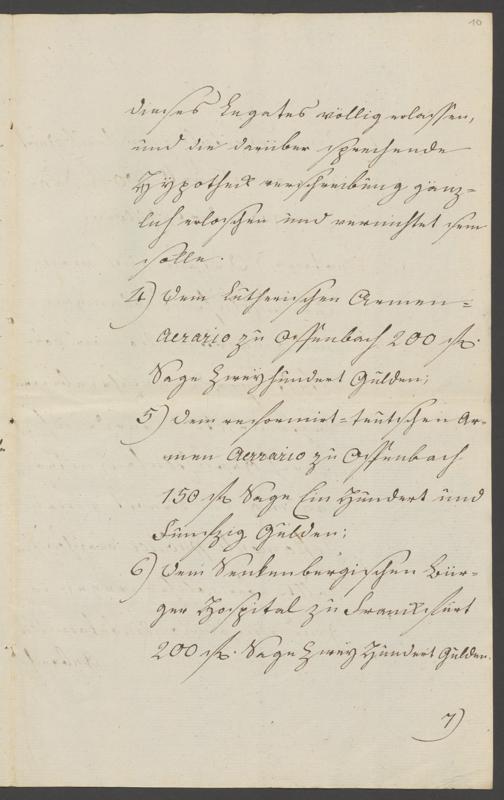 10
dieses Legates völlig erlassen,
und die darüber sprechende
Hypotheck verschreibung gänz=
lich erloschen und vernichtet sein
solle.
4) Dem Lutherischen Armen=
Aerario zu Offenbach 200 fl.
Sage Zweyhundert Gulden;
5) Dem reformirt=teutschen Ar-
men Aerrario zu Offenbach
150 fl. Sage Ein Hundert und
Funfzig Gulden;
6) Dem Senkenbergischen Bür-
ger Hospital zu Franckfurt
200 fl. Sage Zwey Hundert Gulden.
7)